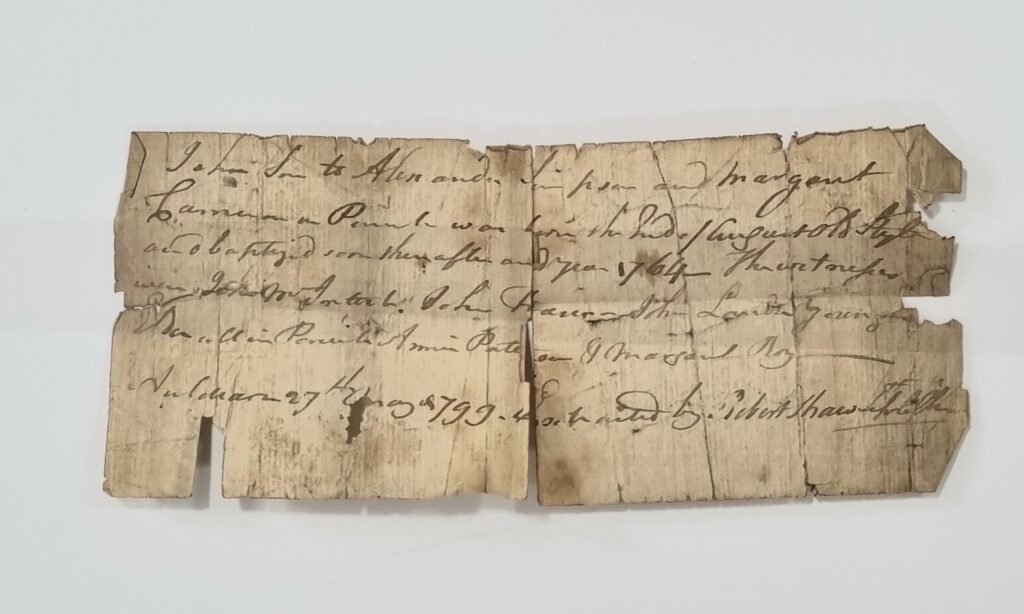 John Son to Alexander Simpson and Margaret
Cameron in Penick was born the 2nd of August old Style
and baptized soon thereafter and year 1764 The witnesses
were John McIntosh John Fraser John
all in Penick Ann Paterson & Margaret Roy
Auldearn 27th May 1799. Extracted by Robert Shaw